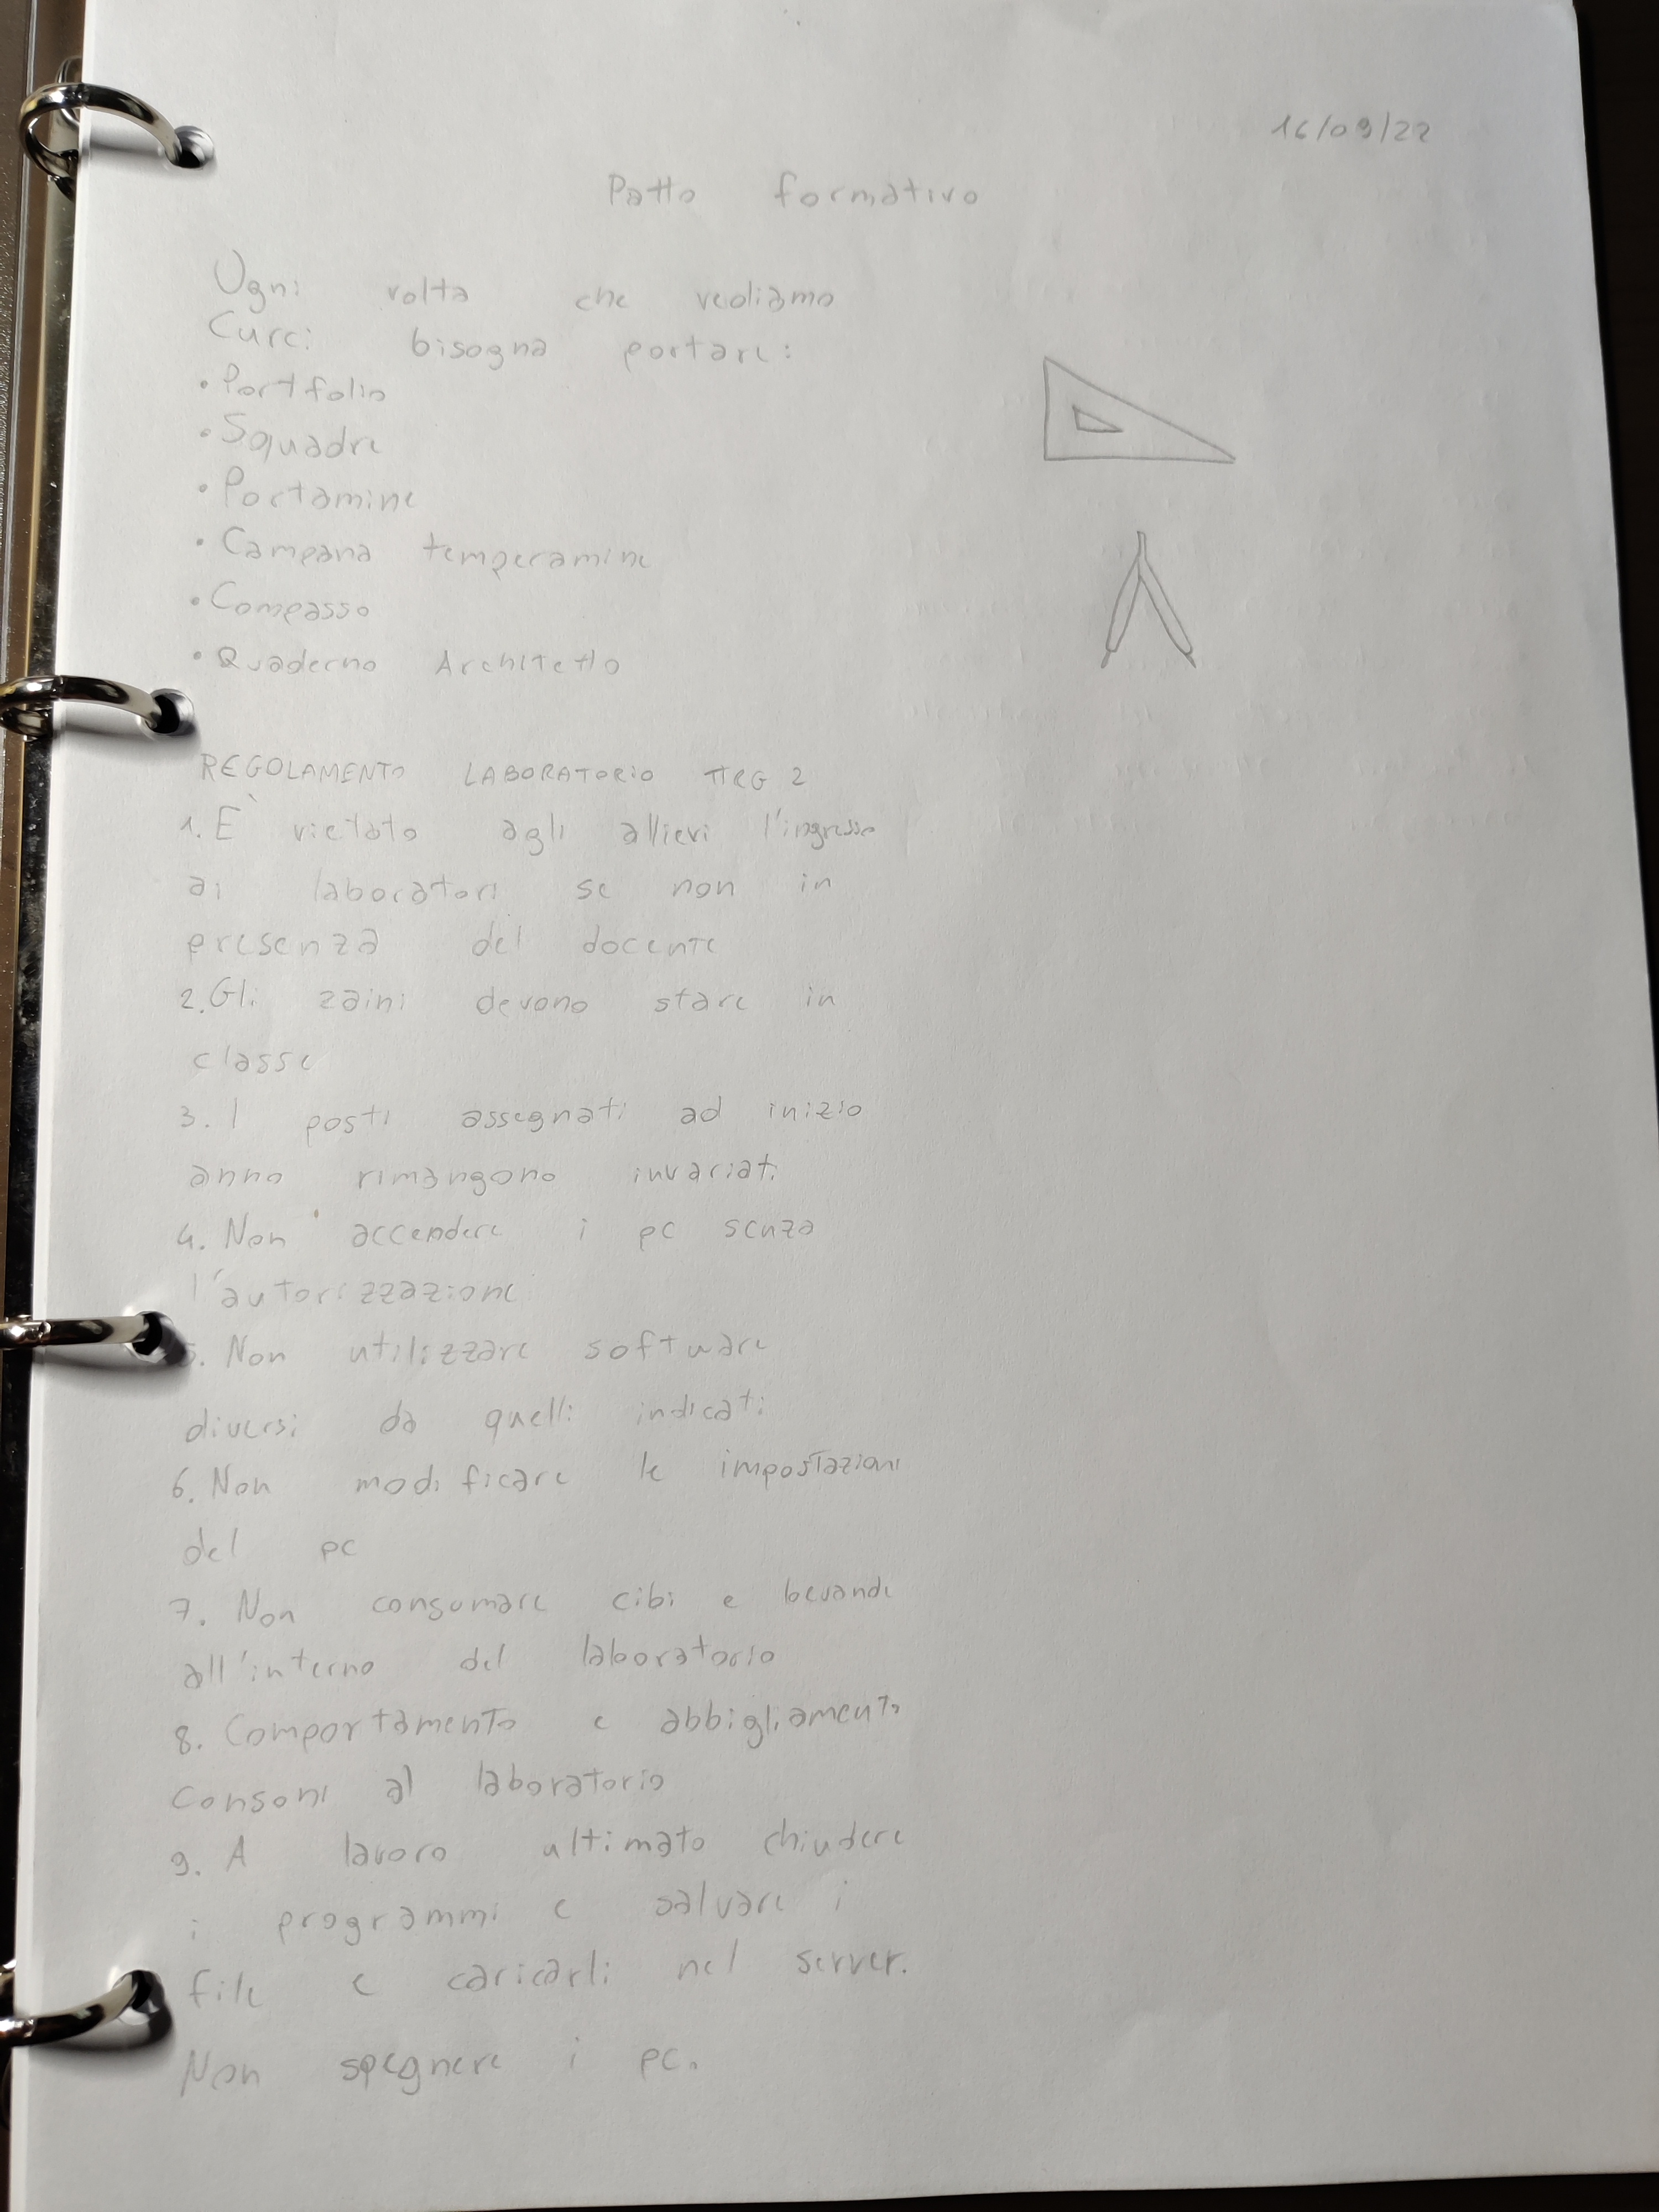 16/09/22
Patto formativo
Ogni volta che vediamo
Curci bisogna portare:
• Portfolio
• Squadre
• Portamine
• Campana temperamine
• Compasso
• Quaderno Architetto
REGOLAMENTO LABORATORIO TTRG 2
1. È vietato agli allievi l'ingresso
ai laboratori se non in
presenza del docente
2. Gli zaini devono stare in
classe
3. I posti assegnati ad inizio
anno rimangono invariati
4. Non accendere i pc senza
l'autorizzazione
5. Non utilizzare software
diversi da quelli indicati
6. Non modificare le impostazioni
del pc
7. Non consumare cibi e bevande
all'interno del laboratorio
8. Comportamento e abbigliamento
consoni al laboratorio
9. A lavoro ultimato chiudere
i programmi e salvare i
file e caricarli nel server.
Non spegnere i pc.